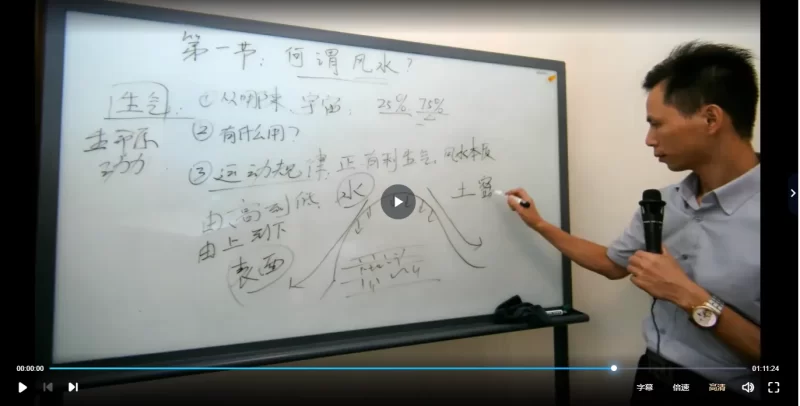 第一节：何谓风水？
生气：①从哪来、宇宙、25% 75%
生命原动力
②有什么用？
③运动规律、正前利生气、风水本质
由高到低、水
土
由上到下
表面
00:00:00
01:11:24
字幕 倍速 高清